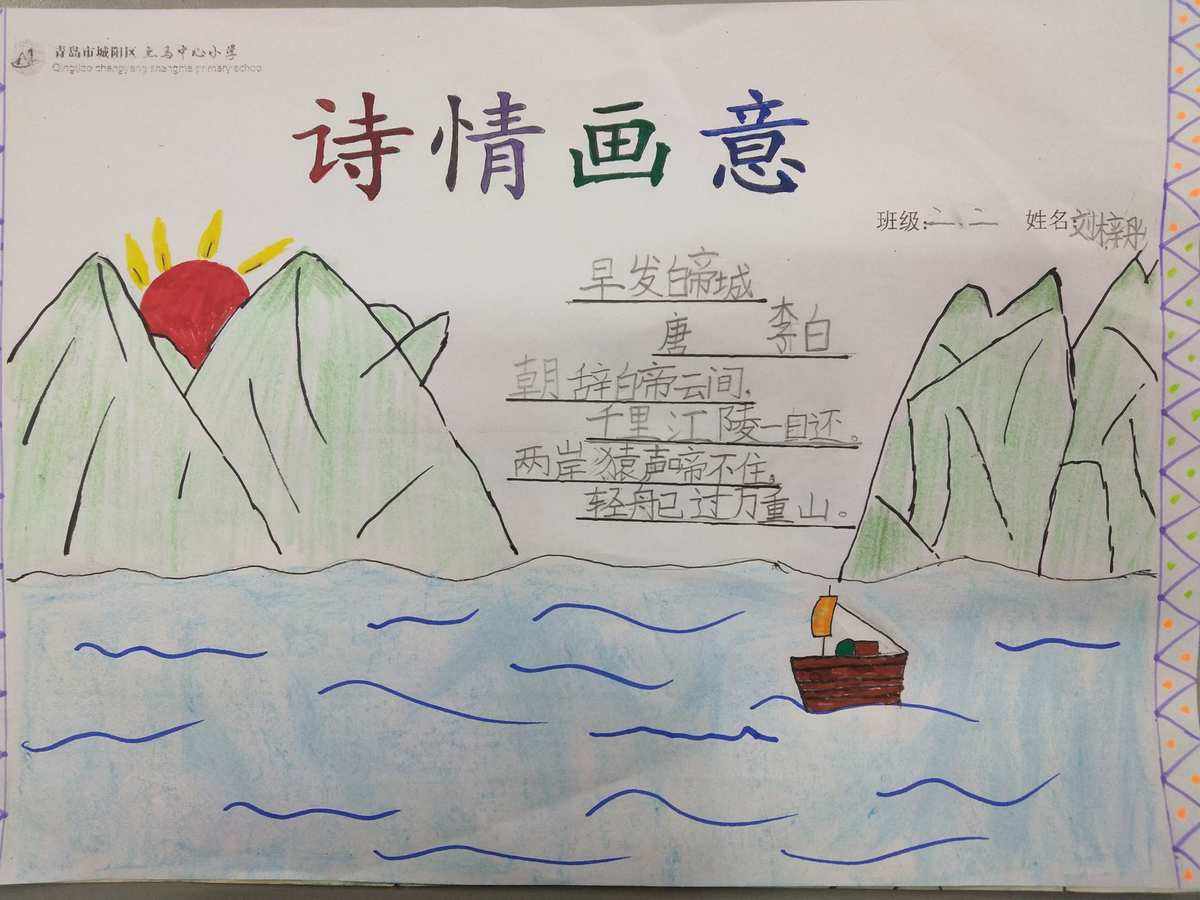 青岛市城阳区上马中心小学
Qingdao chengyang shangma primary school
诗情画意
班级:二、二 姓名:刘梓丹
早发白帝城
唐 李白
朝辞白帝云间，
千里江陵一自还。
两岸猿声啼不住，
轻舟已过万重山。